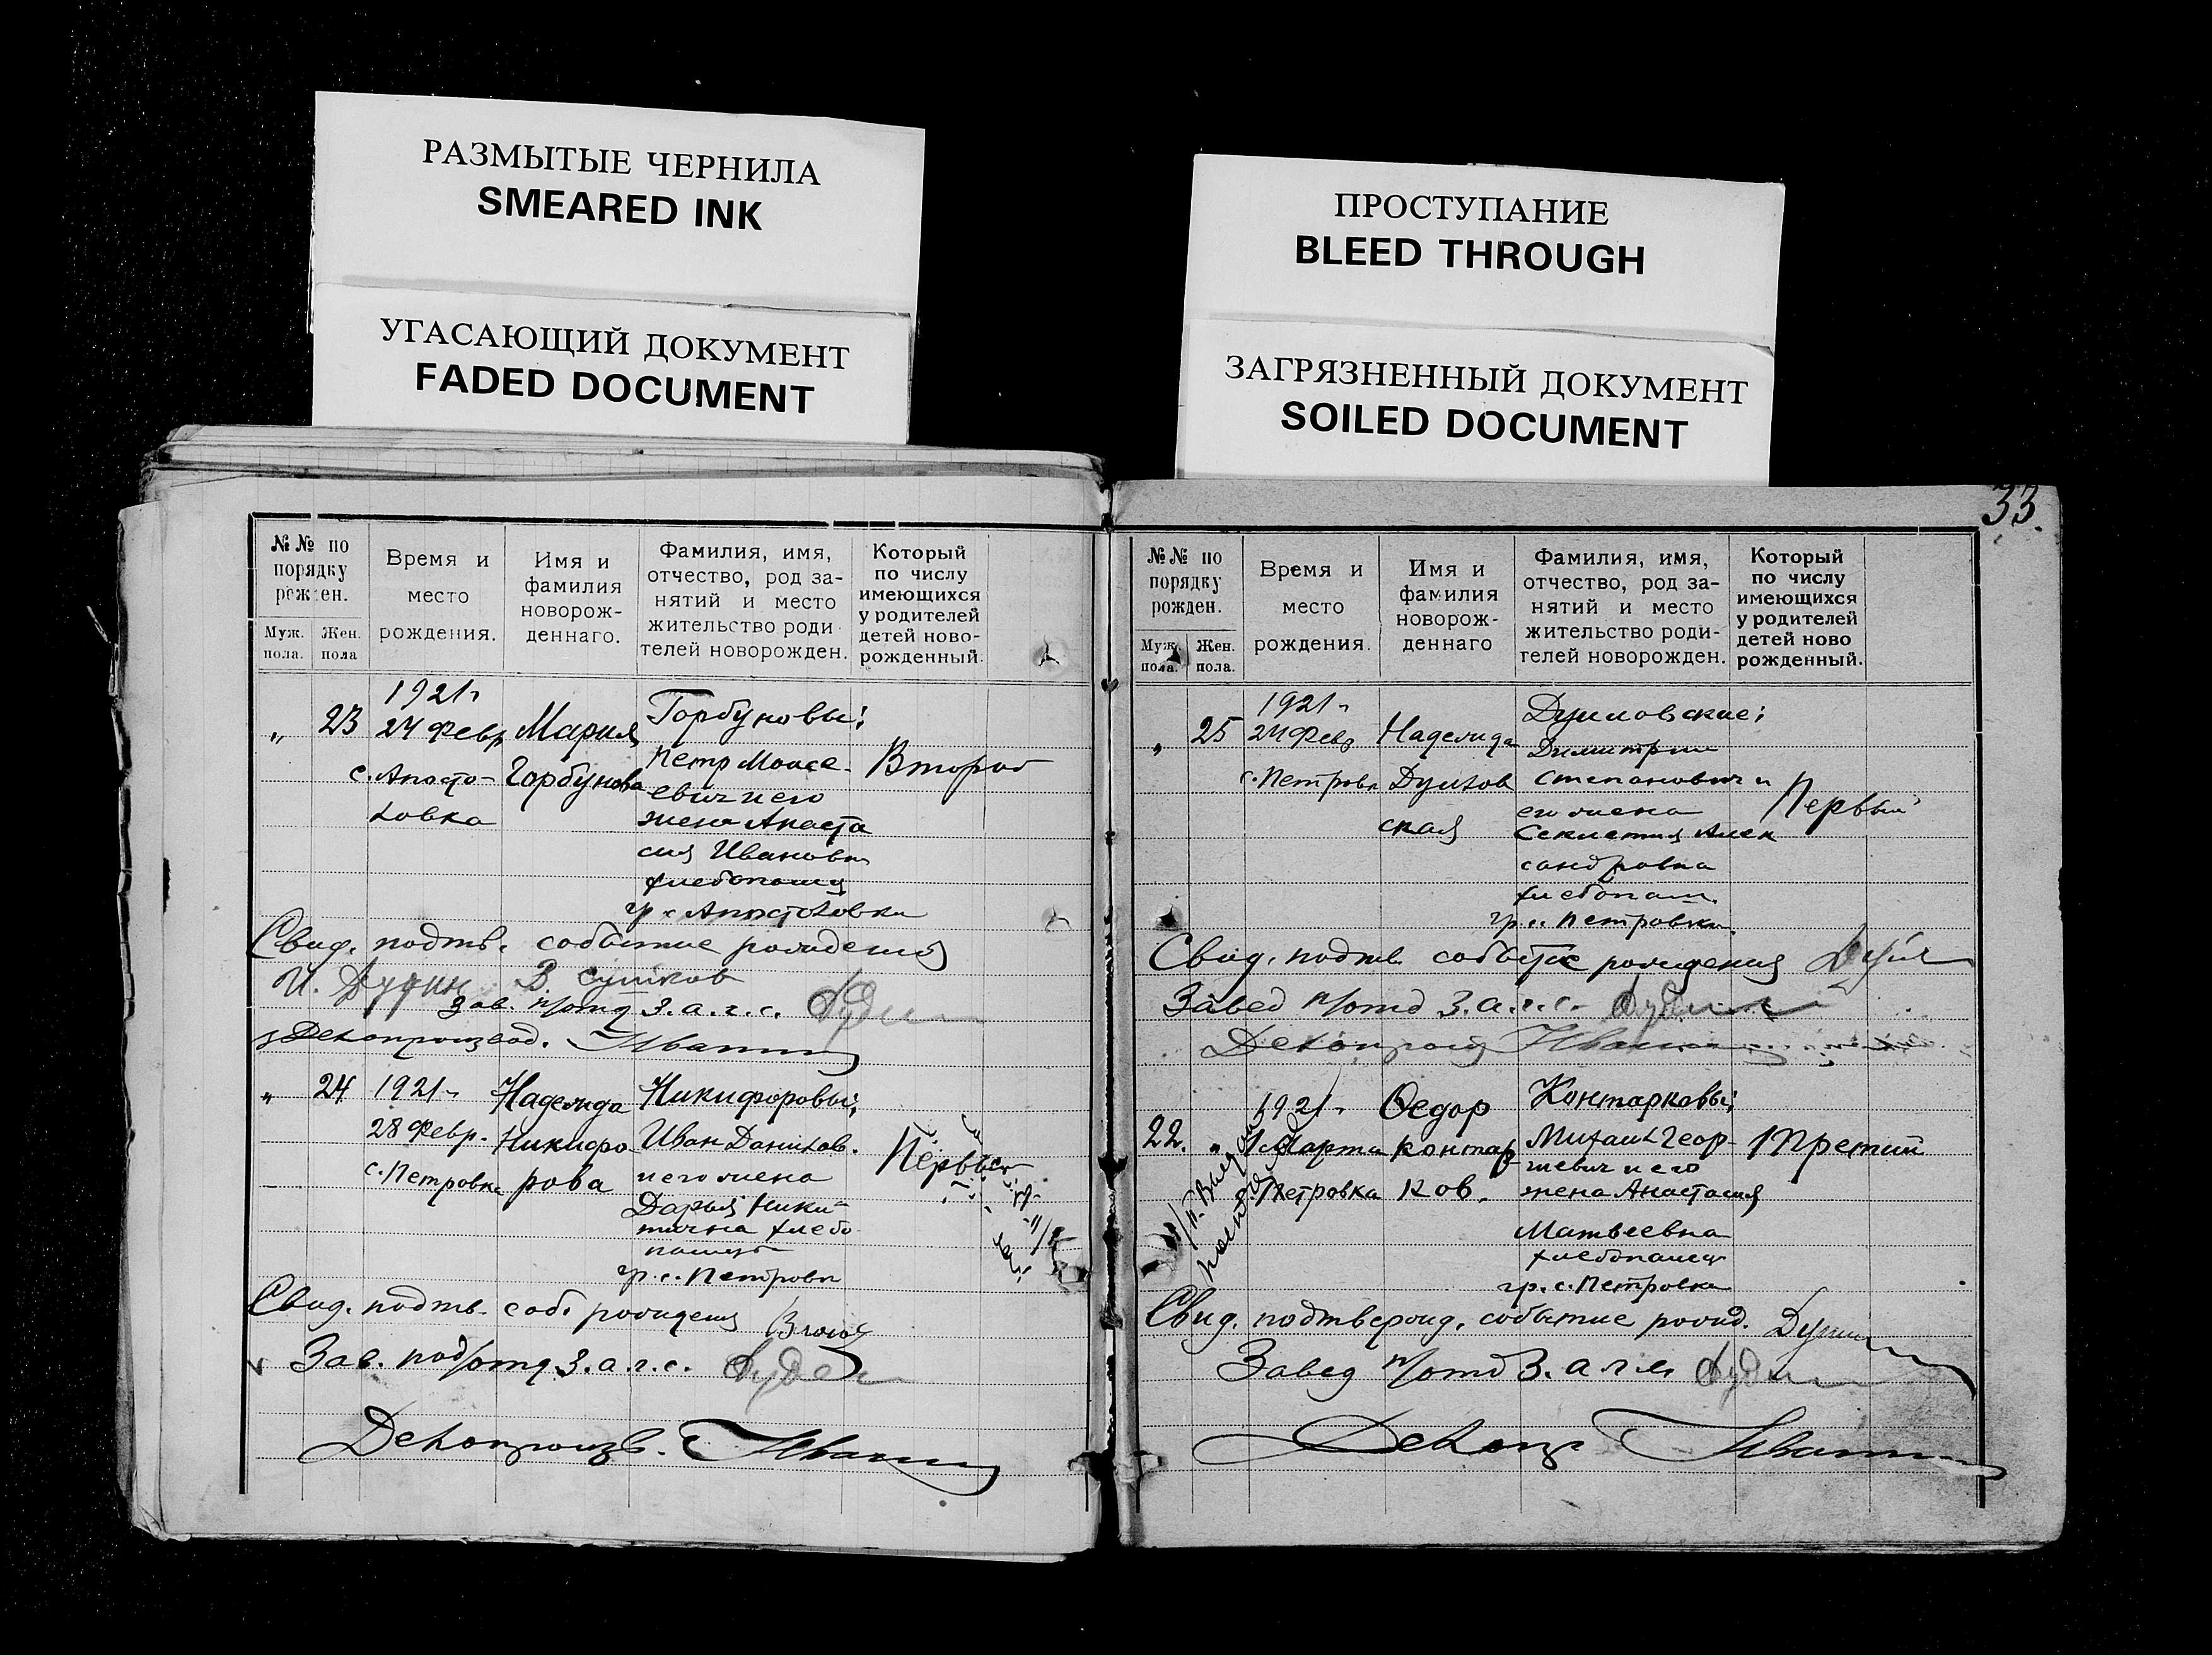 РАЗМЫТЫЕ ЧЕРНИЛА
SMEARED INK
УГАСАЮЩИЙ ДОКУМЕНТ
FADED DOCUMENT
ПРОСТУПАНИЕ
BLEED THROUGH
ЗАГРЯЗНЕННЫЙ ДОКУМЕНТ
SOILED DOCUMENT
№№ по
порядку
рожден.
Муж.
пола.
Жен.
пола
Время и
место
рождения.
Имя и
фамилия
новорож-
деннаго.
Фамилия, имя,
отчество, род за-
нятий и место
жительство роди-
телей новорожден.
Который
по числу
имеющихся
у родителей
детей ново-
рожденный.
„ 23
1921 г
24 февр
с. Апосто-
ловка
Мария
Горбунова
Горбуновы:
Петр Моисе-
евич и его
жена Анаста
сия Ивановна
хлебопашц
гр. с. Апостоловки
Второй
Свид. подтв. событие рождения
И. Дудин В. Сушков
Зав. п/отд З.а.г.с.
Делопроизвод.
„ 24
1921 г
28 февр.
с. Петровка
Надежда
Никифо
рова
Никифоровы;
Иван Данилов.
и его жена
Дарья Ники-
тична хлебо-
пашцы
гр. с. Петровки
Первый
Свид. подтв. соб. рождения
Зав. под/отд З.а.г.с.
Делопроизв.
33.
№№ по
порядку
рожден.
Муж.
пола.
Жен.
пола.
Время и
место
рождения.
Имя и
фамилия
новорож-
деннаго
Фамилия, имя,
отчество, род за-
нятий и место
жительство роди-
телей новорожден.
Который
по числу
имеющихся
у родителей
детей ново
рожденный.
„ 25
1921 г
24 февр
с. Петровка
Надежда
ская
Димитрий
Степанович и
его жена
Алек
сандровна
хлебопаш.
гр. с. Петровки.
Первый
Свид. подтв. событие рождения
Завед п/отд З.а.г.с.
Делопроизв
22. „
1921 г
1 Марта
Петровка
Федор
Контар
ков.
Контарковы;
Михаил Геор-
гиевич и его
жена Анастасия
Матвеевна
хлебопашц
гр. с. Петровка
Третий
Свид. подтвержд. событие рожд.
Завед п/отд З.а.г.с.
Делопр